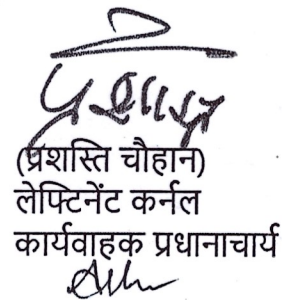 (प्रशस्ति चौहान)
लेफ्टिनेंट कर्नल
कार्यवाहक प्रधानाचार्य